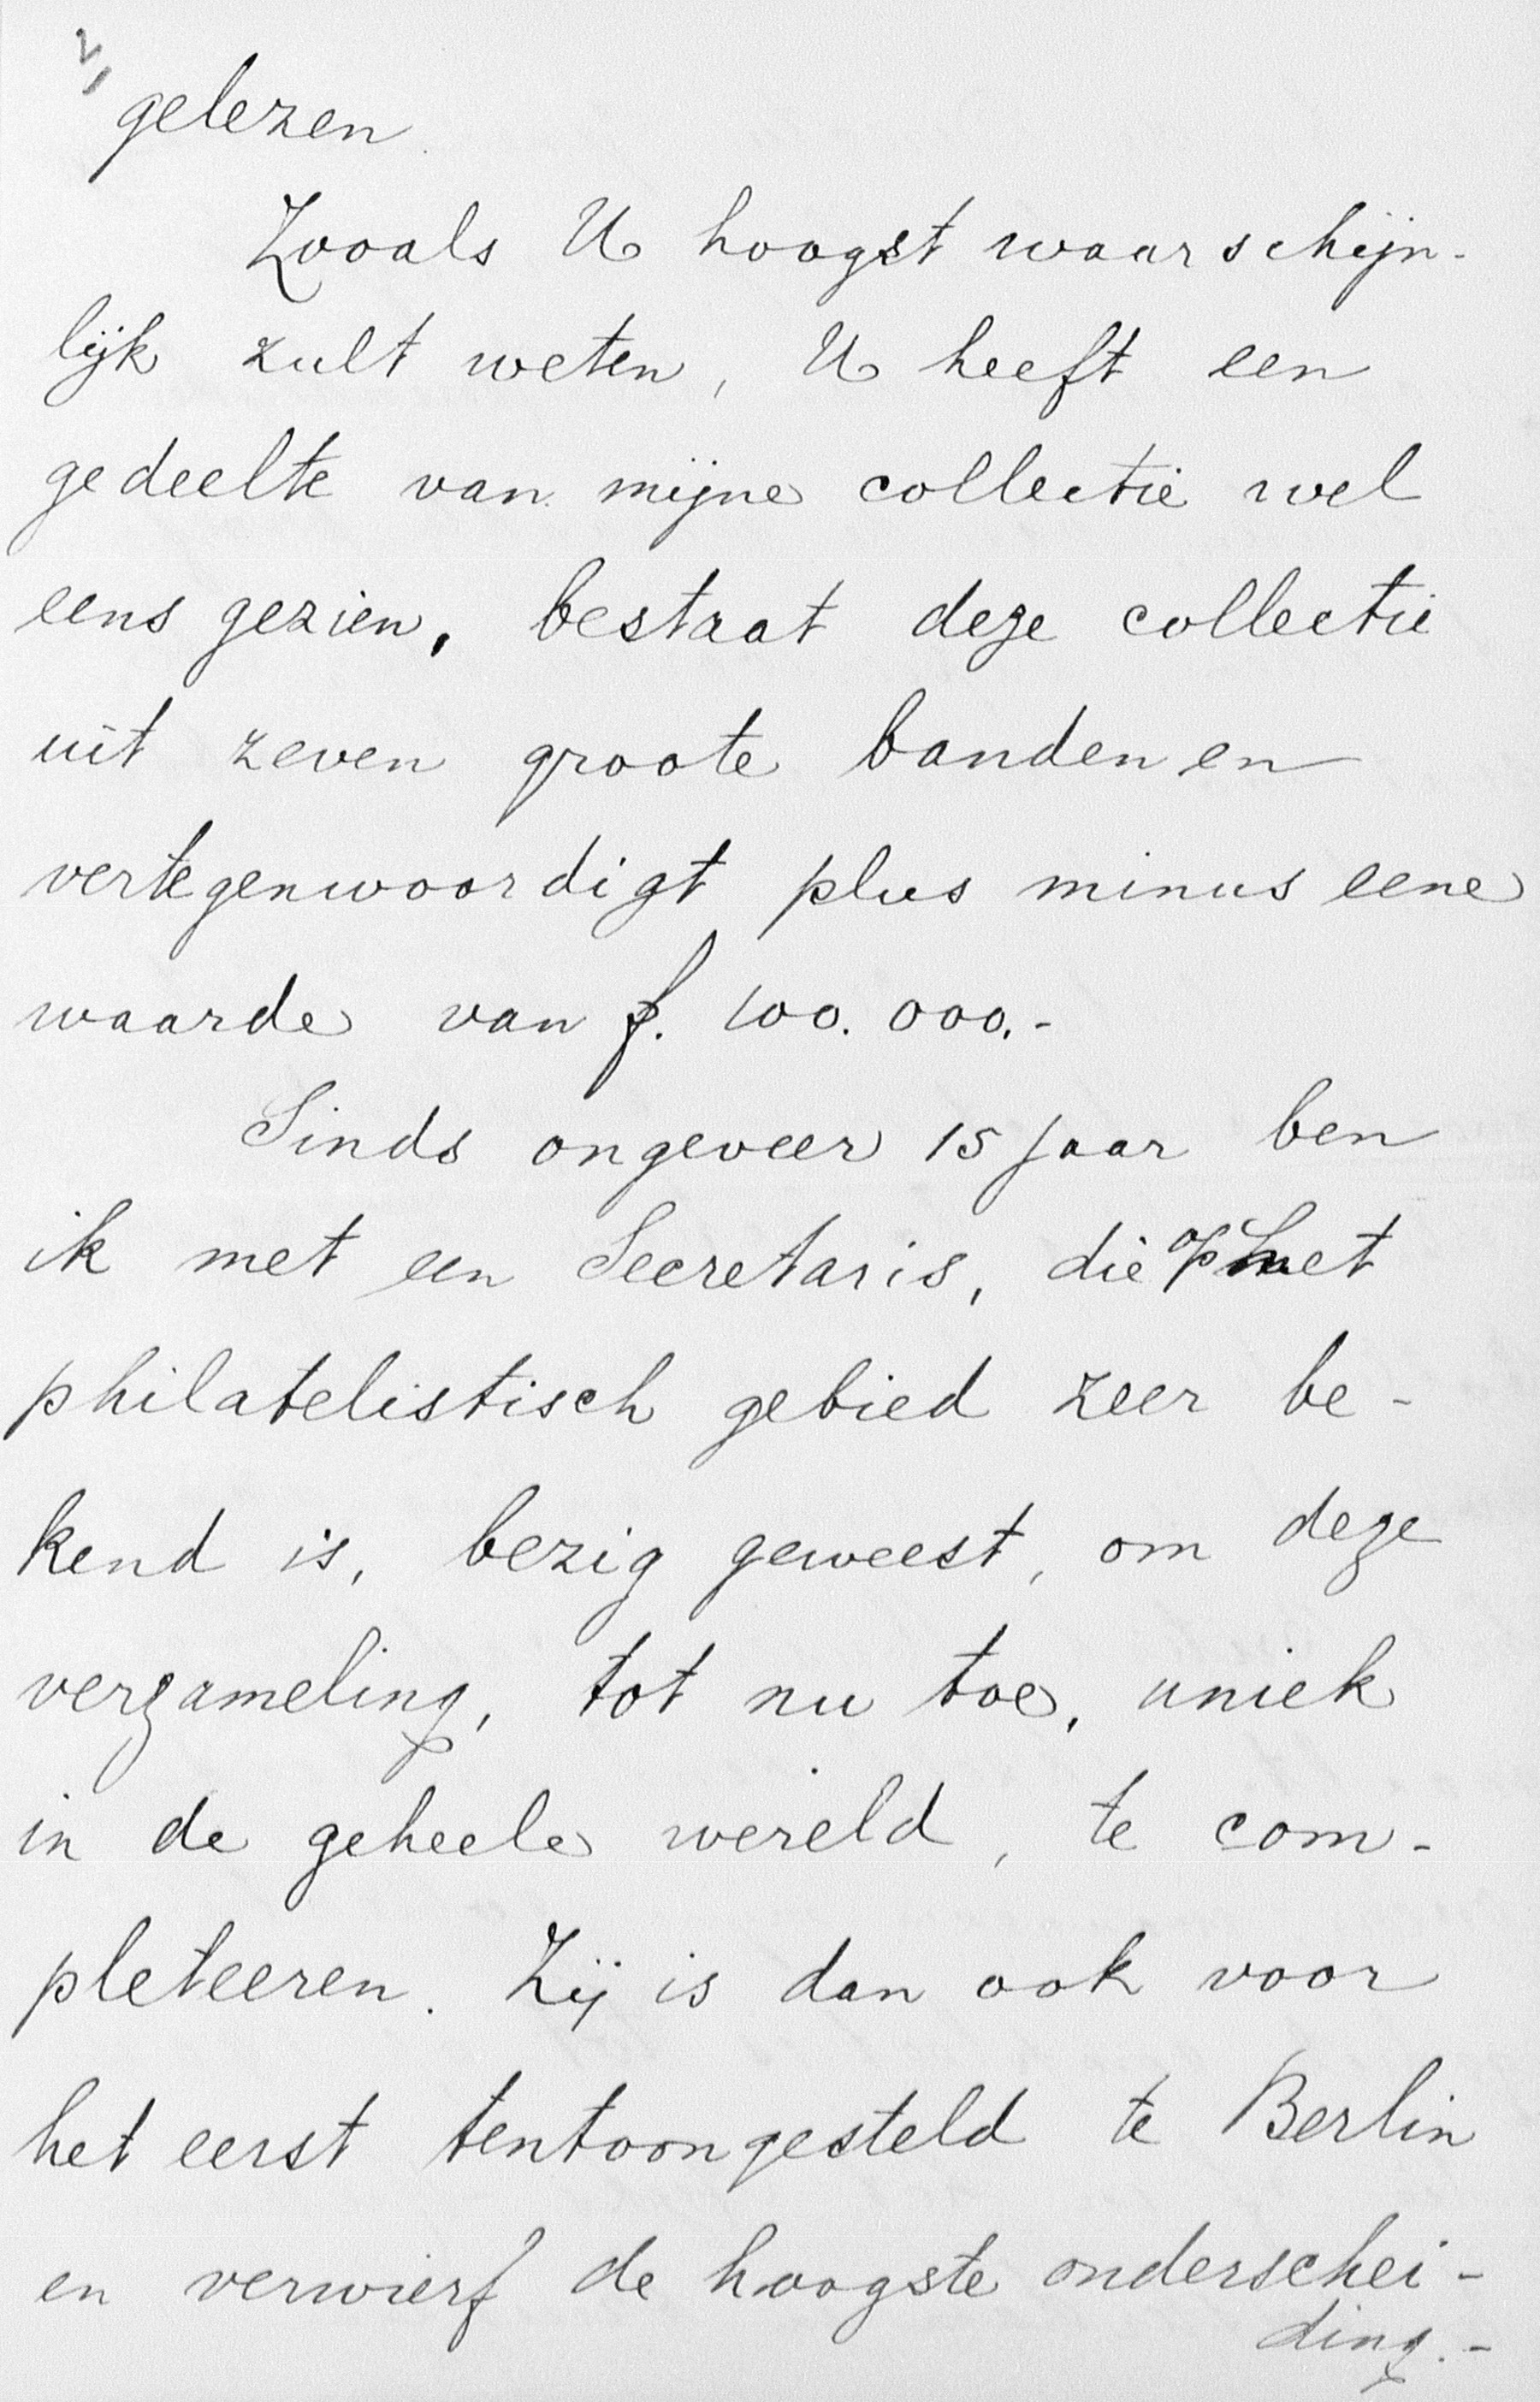 2,
gelezen.
Zooals U hoogst waarschijn-
lijk zult weten, U heeft een
gedeelte van mijne collectie wel
eens gezien, bestaat deze collectie
uit zeven groote banden en
vertegenwoordigt plus minus eene
waarde van f. 100.000.-
Sinds ongeveer 15 jaar ben
ik met een Secretaris, die op het
philatelistisch gebied zeer be-
kend is, bezig geweest, om deze
verzameling, tot nu toe, uniek
in de geheele wereld, te com-
pleteeren. Zij is dan ook voor
het eerst tentoongesteld te Berlin
en verwierf de hoogste onderschei-
ding.-